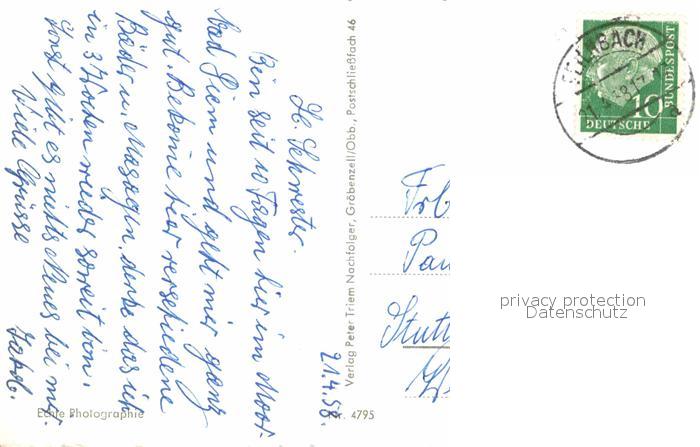 21.4.58.
Lb. Schwester.
Bin seit 10 Tagen hier im Moor-
bad und geht mir ganz
gut. Bekome hier verschiedene
Bäder u. Masagen, denke das ich
in 3 Wochen wieder soweit bin.
Sonst gibt es nichts Neues bei mir
Viele Grüsse
Jakob.
Echte Photographie
Nr. 4795
Verlag Peter Triem Nachfolger, Gröbenzell/Obb., Postschließfach 46
DEUTSCHE
BUNDESPOST
10
a
Pau
Stutt
privacy protection
Datenschutz